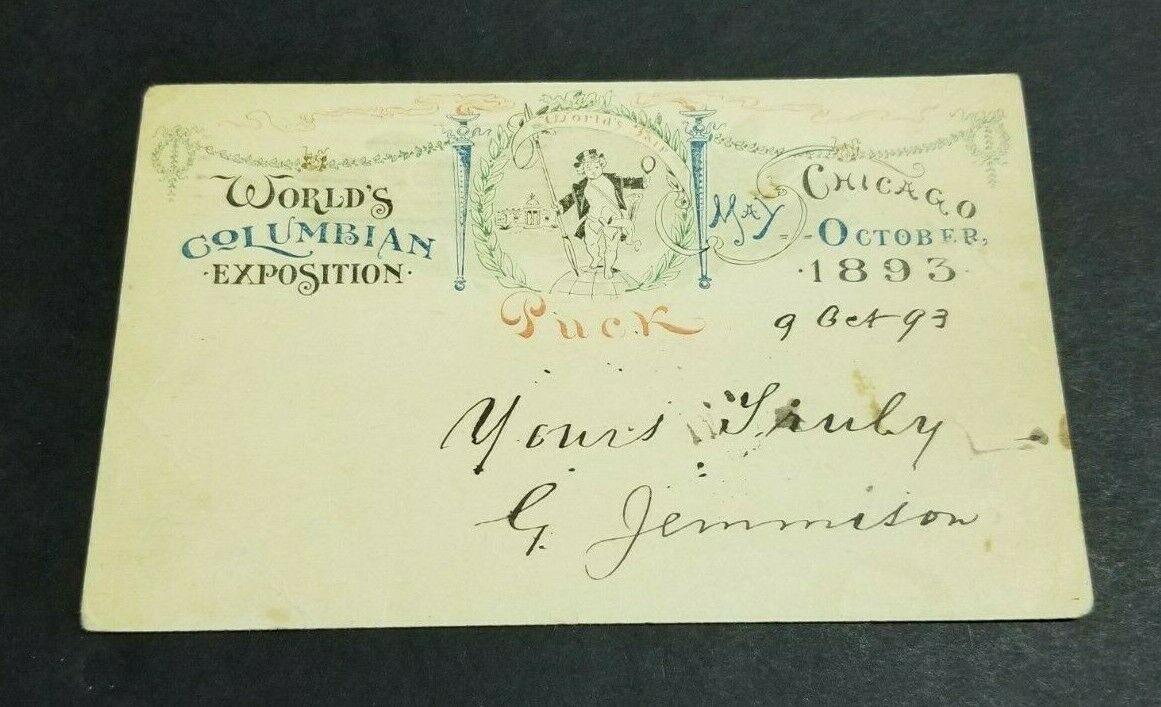 World's Fair
WORLD'S
COLUMBIAN
·EXPOSITION·
MAY -- CHICAGO
OCTOBER,
·1893·
Puck
9 Oct 93
Yours Truly
G. Jemmison